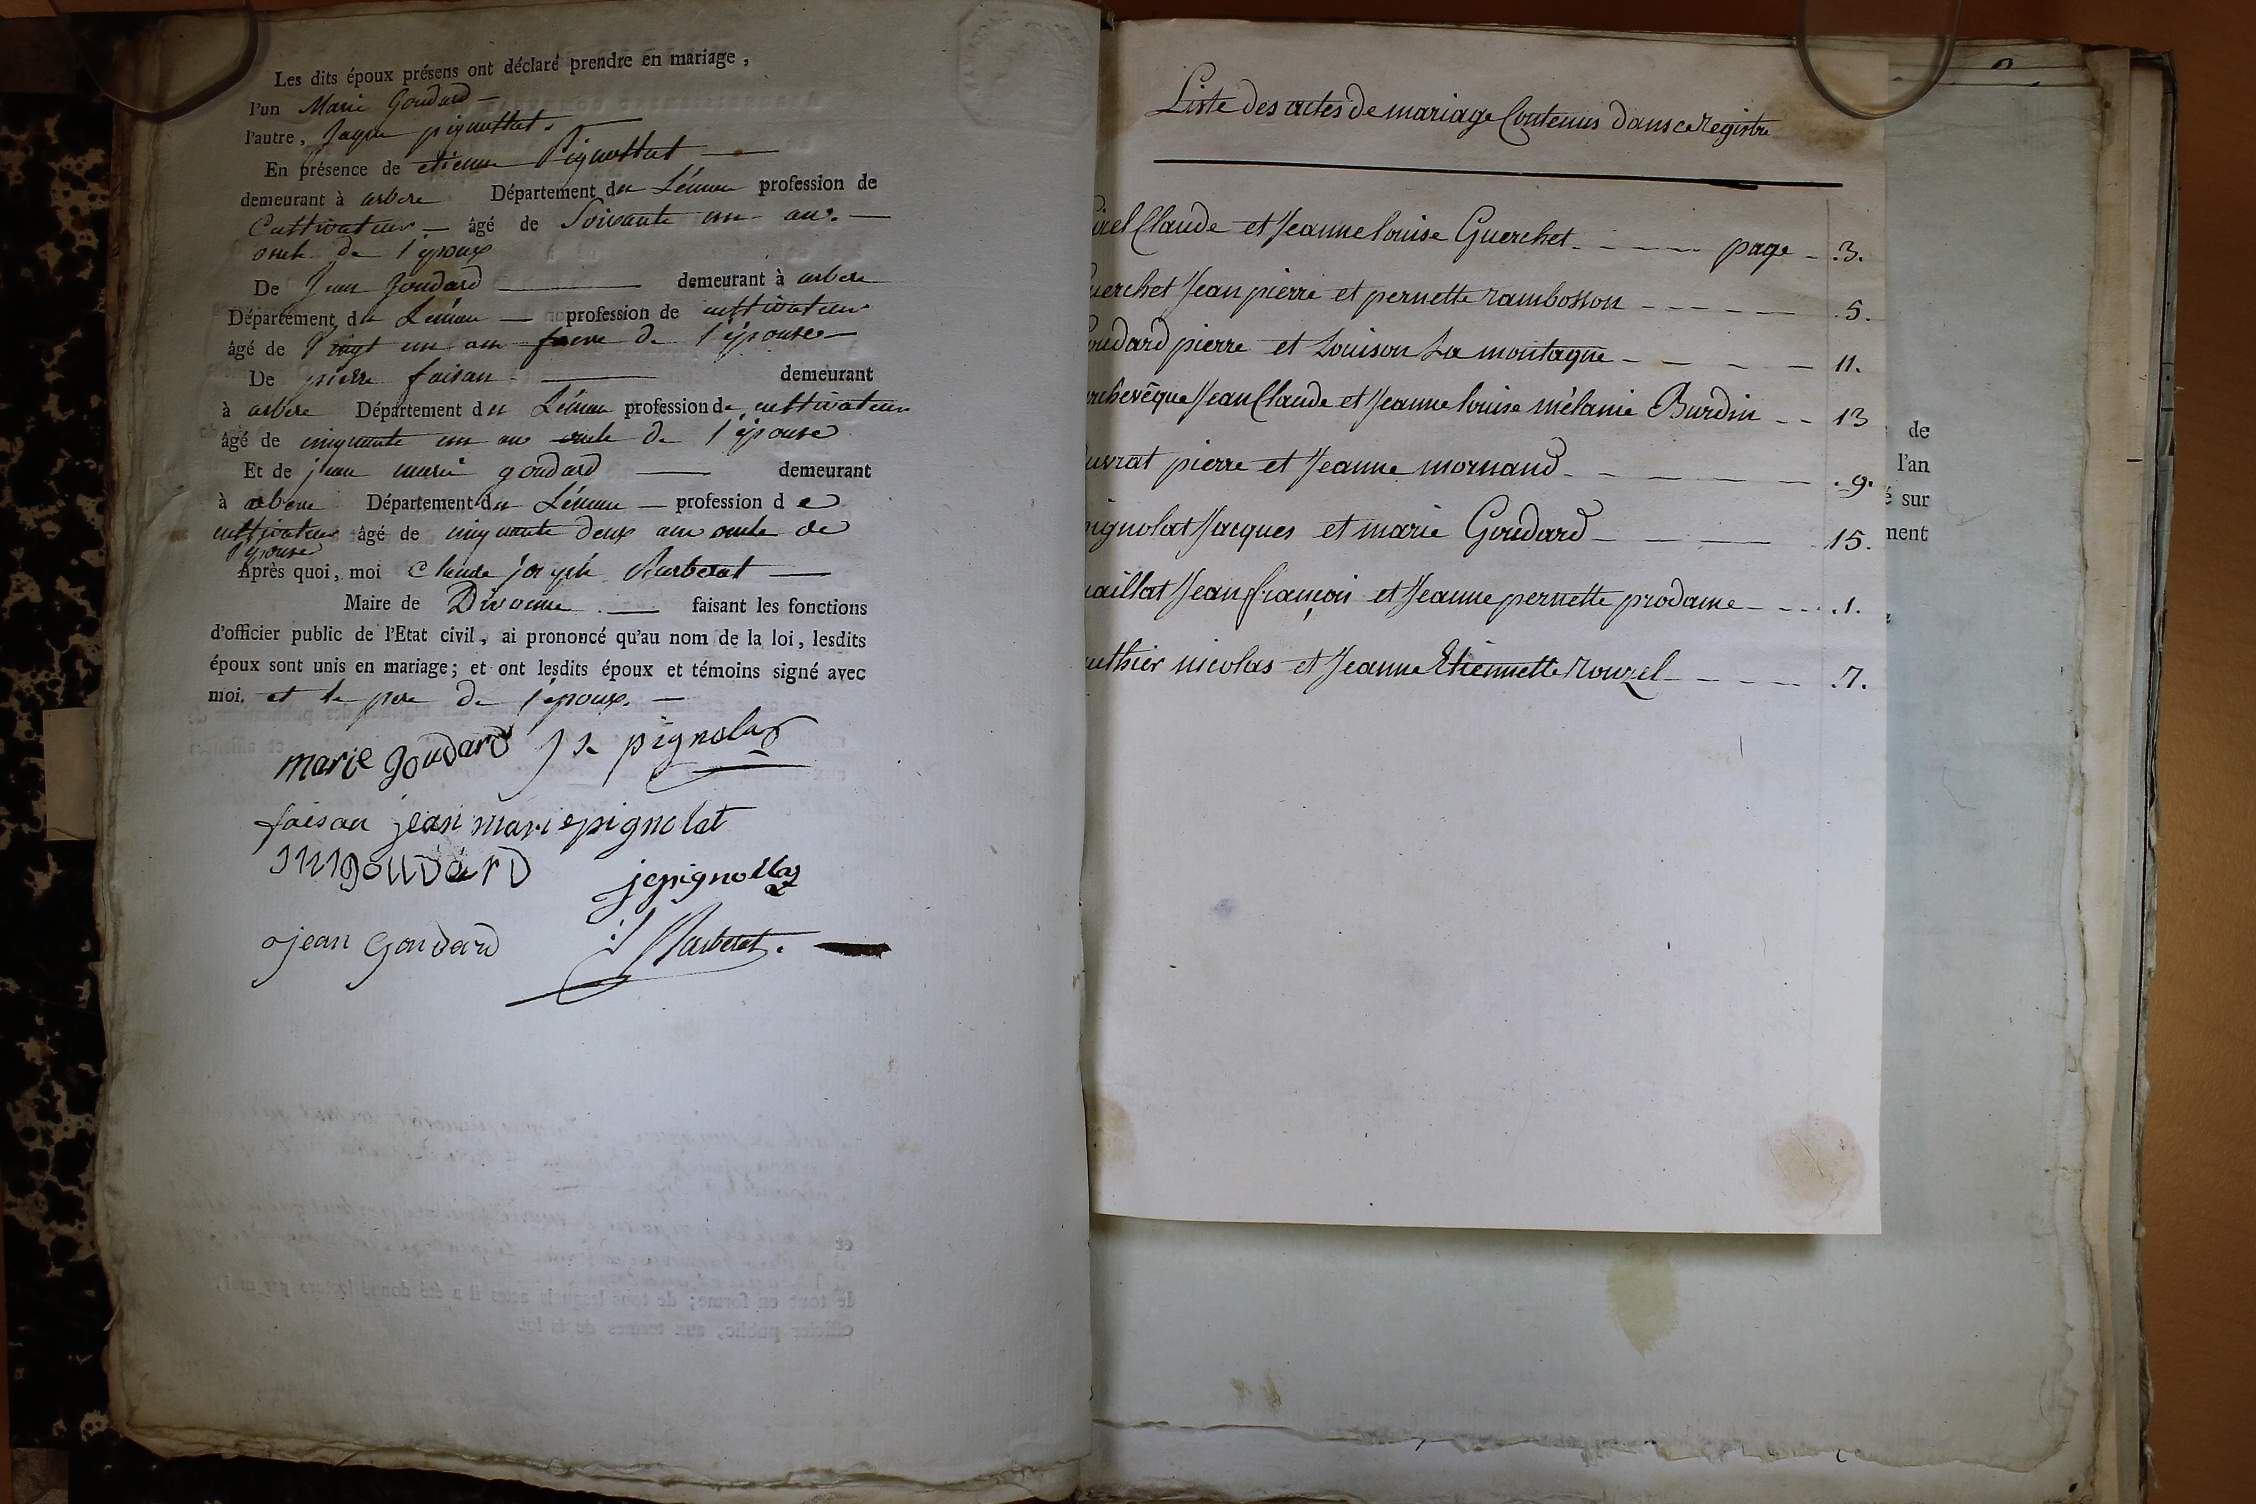 Les dits époux présens ont déclaré prendre en mariage,
l'un Marie Goudard
l'autre, Jaque pignollat.
En présence de etienne Pignollat
demeurant à arbere Département du Léman profession de
Cultivateur âgé de Soixante un ans.
oncle de l'époux
De Jean Goudard demeurant à arbere
Département du Léman profession de cultivateur
âgé de Vingt un ans frere de l'épouse
De pierre faisan demeurant
à arbere Département du Léman profession de cultivateur
âgé de cinquante un ans oncle de l'épouse
Et de jean marie goudard demeurant
à arbere Département du Léman profession de
cultivateur âgé de cinquante deux ans oncle de
l'épouse
Après quoi, moi Claude joseph Barberat
Maire de Divonne faisant les fonctions
d'officier public de l'Etat civil, ai prononcé qu'au nom de la loi, lesdits
époux sont unis en mariage; et ont lesdits époux et témoins signé avec
moi. et le pere de l'époux.
marie goudard pignolat
faisan jean marie pignolat
goudard jepignollaz
jean Goudard Barberat.
Liste des actes de mariage Contenus dans ce Registre
Claude et Jeanne louise Guerchet page 3.
uerchet Jean pierre et pernette rambosson 5.
oudard pierre et Louison La montagne 11.
rchevêque Jean Claude et Jeanne louise mélanie Burdin 13
uvrat pierre et Jeanne mornand .9.
ignolat Jacques et marie Goudard 15.
aillat Jean françois et Jeanne pernette prodame .1.
uthier nicolas et Jeanne Etiennette rouzel .7.
de
l'an
é sur
ment